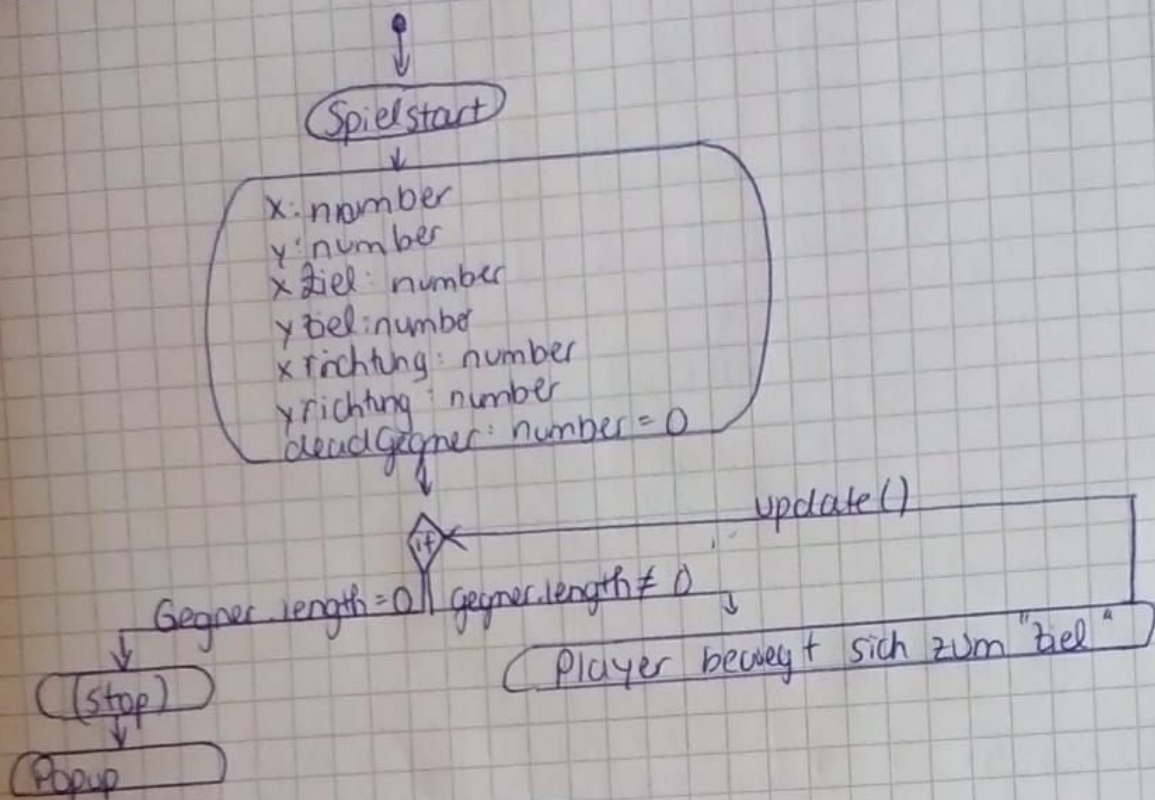 Spielstart
x: number
y: number
x Ziel: number
y Ziel: number
x richtung: number
y richtung: number
deadGegner: number = 0
update()
if
Gegner.length = 0
gegner.length ≠ 0
Player bewegt sich zum "Ziel"
(stop)
Popup